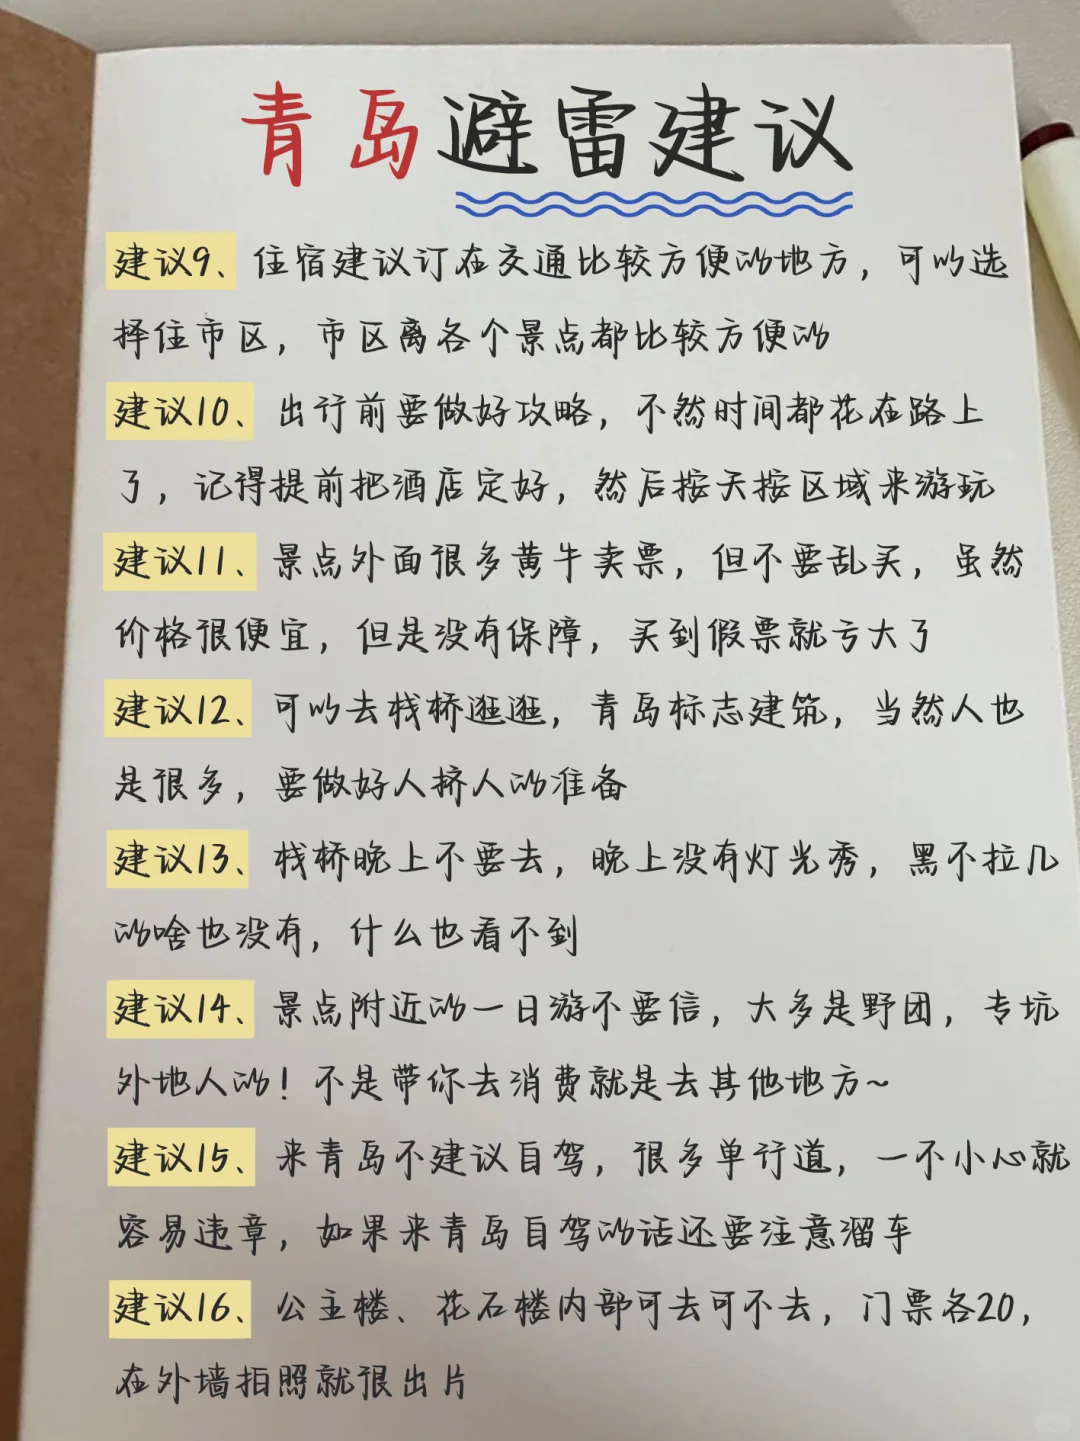 青岛避雷建议
建议9、住宿建议订在交通比较方便的地方，可以选
择住市区，市区离各个景点都比较方便的
建议10、出行前要做好攻略，不然时间都花在路上
了，记得提前把酒店定好，然后按天按区域来游玩
建议11、景点外面很多黄牛卖票，但不要乱买，虽然
价格很便宜，但是没有保障，买到假票就亏大了
建议12、可以去栈桥逛逛，青岛标志建筑，当然人也
是很多，要做好人挤人的准备
建议13、栈桥晚上不要去，晚上没有灯光秀，黑不拉几
的啥也没有，什么也看不到
建议14、景点附近的一日游不要信，大多是野团，专坑
外地人的！不是带你去消费就是去其他地方~
建议15、来青岛不建议自驾，很多单行道，一不小心就
容易违章，如果来青岛自驾的话还要注意溜车
建议16、公主楼、花石楼内部可去可不去，门票各20，
在外墙拍照就很出片